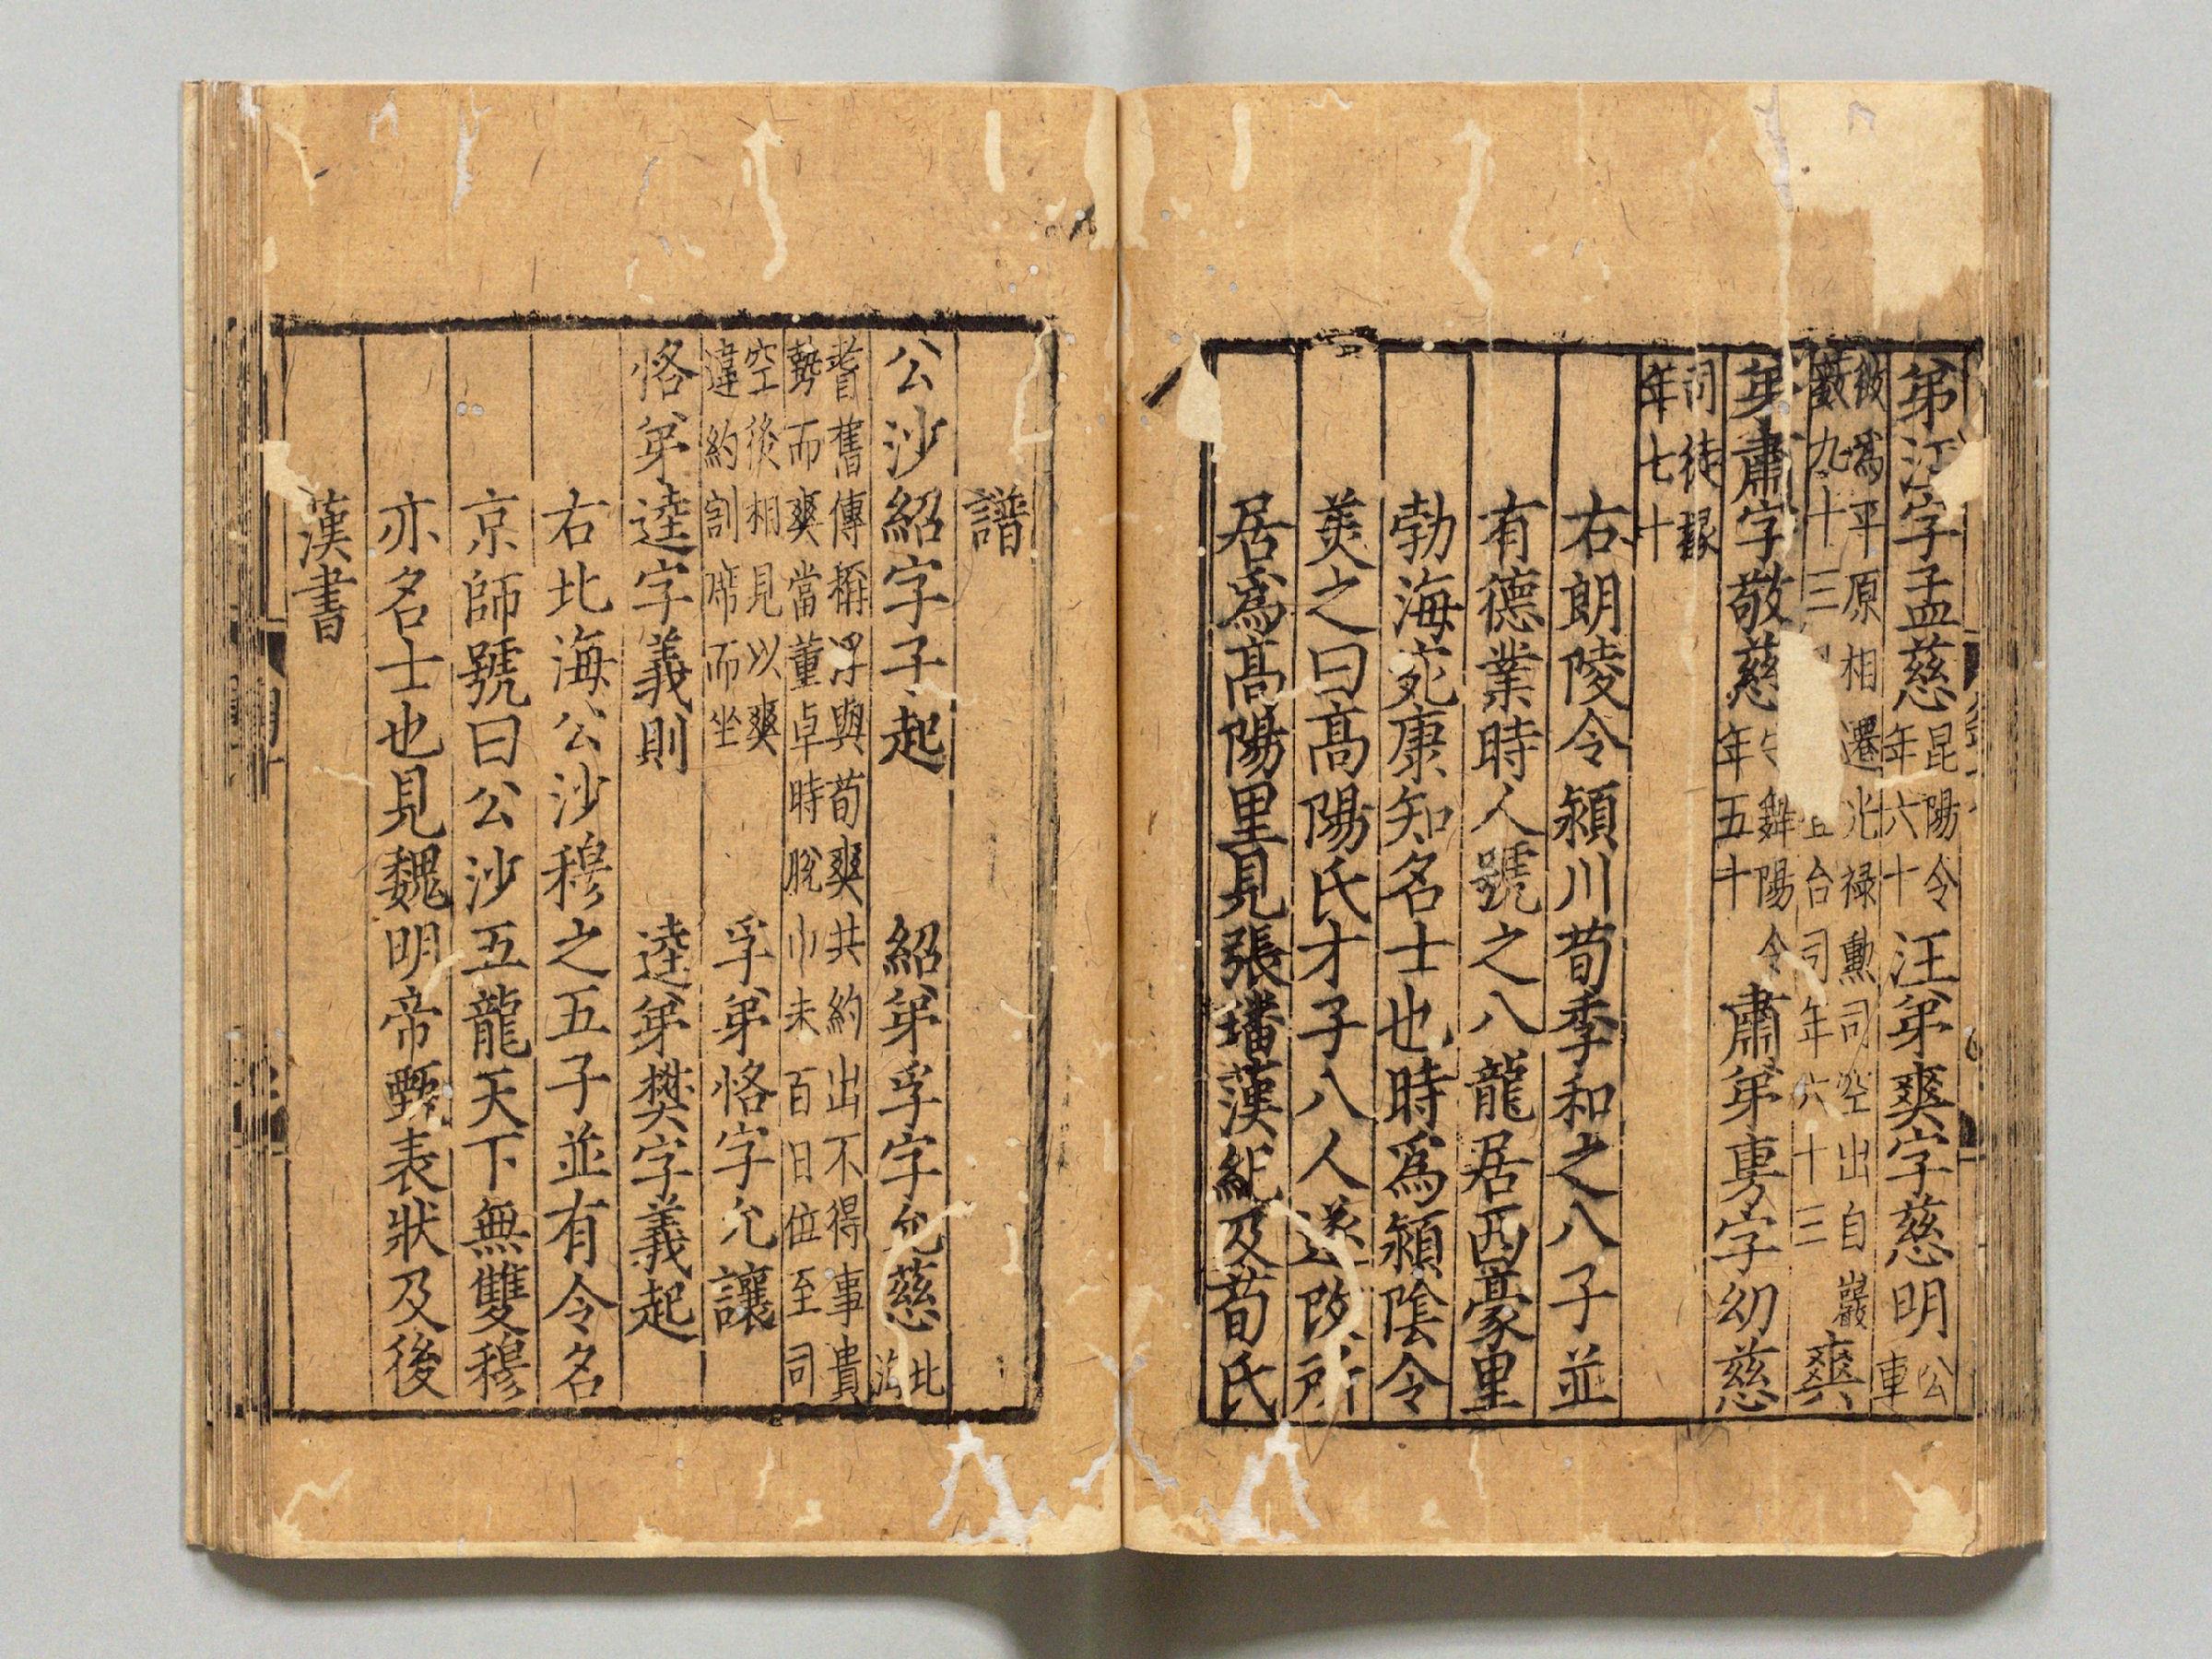 弟汪字孟慈昆陽令年六十汪弟爽字慈明公車
徵爲平原相遷光祿勲司空出自巖
藪九十三日台司年六十三爽
弟肅字敬慈舞陽令年五十肅弟旉字幼慈
司徒掾年七十
右朗陵令潁川荀季和之八子並
有德業時人號之八龍居西豪里
勃海苑康知名士也時爲潁隂令
羙之曰髙陽氏才子八人遂改所
居爲髙陽里見張璠漢紀及荀氏
譜
公沙紹字子起 紹弟孚字允慈北海
耆舊傳稱孚與荀爽共約出不得事貴
勢而爽當董卓時脫巾未百日位至司
空後相見以爽違約割席而坐 孚弟恪字允讓
恪弟逵字義則 逵弟樊字義起
右北海公沙穆之五子並有令名
京師號曰公沙五龍天下無雙穆
亦名士也見魏明帝甄表狀及後
漢書